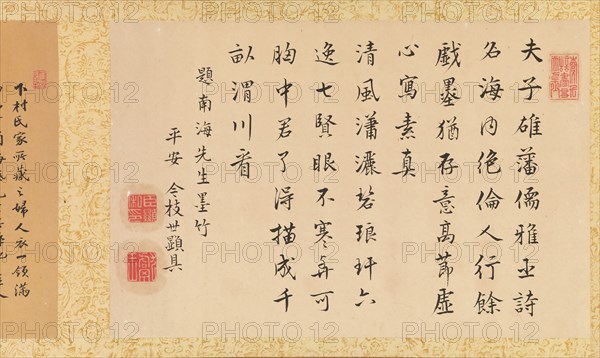 夫子雄藩儒雅正詩
名海内絶倫人行餘
戯墨猶存意高節虚
心寫素真
清風瀟灑碧琅玕六
逸七賢眼不寒与可
胸中君了得描成千
畝渭川看
題南海先生墨竹
平安 今枝世顕具
下村氏家所蔵之婦人衣一領滿
PHOTO12